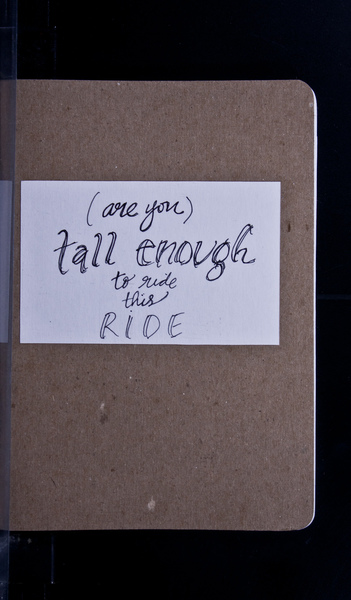 (are you)
tall enough
to ride
this
RIDE